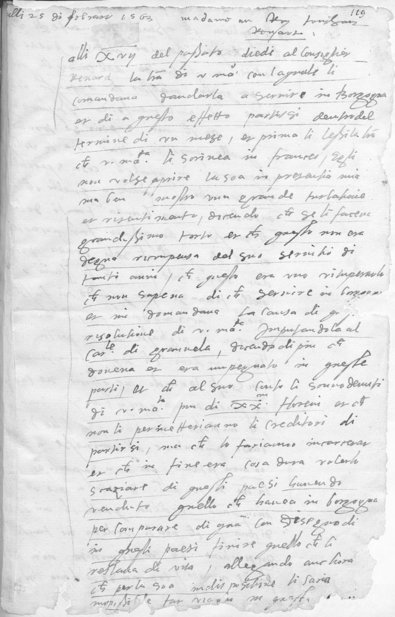 alli 25 di febraro 1563 madama
119
alli XVij del passato diedi al Consiglier
Renard la lra di v. ma. con laquale li
comandava d'andarla a servire in Borgogna
et di a questo effetto partirsi dentro del
termine di un mese, et prima li lessi la lra
ch v. ma. li scrivea in francese, Egli
non volse aprire la sua in presentia mia
ma ben mostro una grande turbatione
et risentimento, dicendo, ch se li faceva
grandissimo torto et ch questo non era
degna ricompensa del suo servitio di
tanti anni, ch questo era uno
ch non sapeva di ch servire in borgogna
et mi domandava la causa di
resolutione di v. ma. Imputandola al
Carle di granvela, dicendo di piu ch
doveva et era impegnato in queste
parti, et ch al suo
di v. ma. piu di florini et ch
non li permetterianno li creditori di
partirsi, ma ch lo farianno incarcerar
et ch in fine era cosa dura volerlo
scacciare di questi paesi havendo
venduto quello ch havea in borgogna
per comprare di qua con disegno di
in questi paesi finire quello ch li
restava di vita, allegando anchora
ch per la sua indispositione li saria
impossibile far viagio